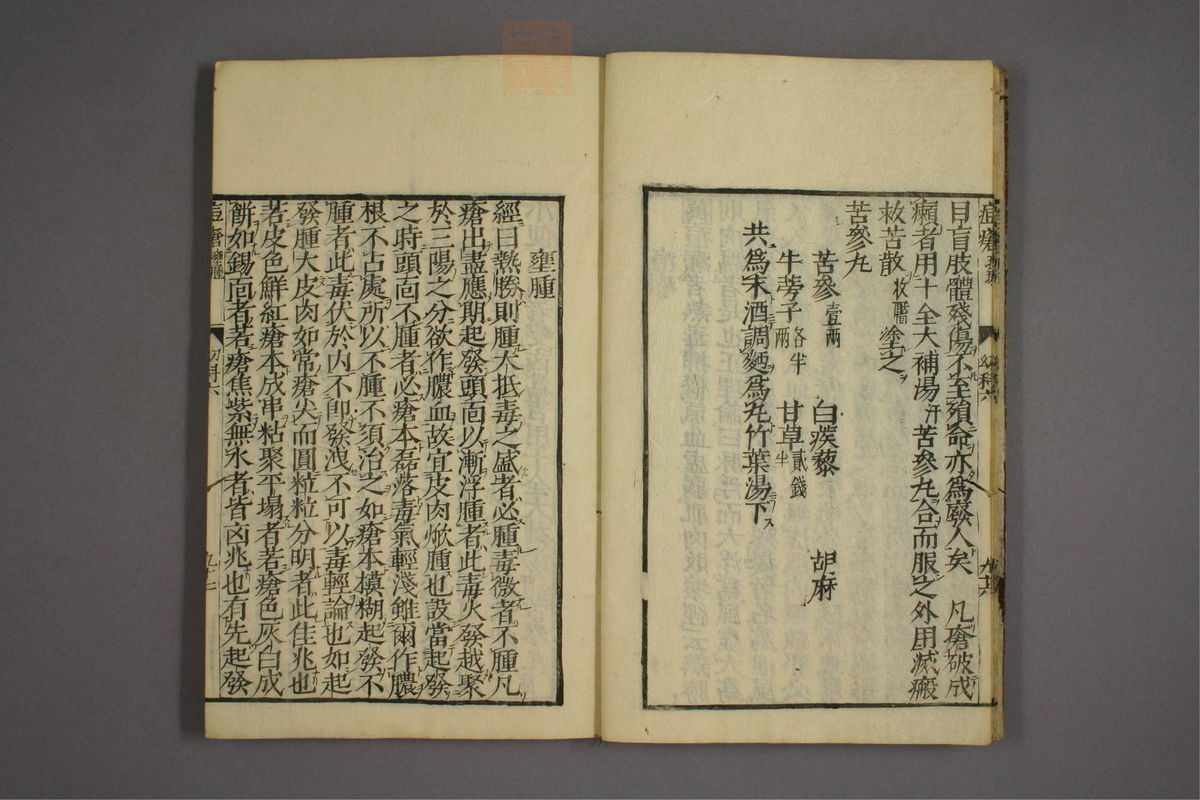 痘瘡
幼科六
目盲肢體殘傷不至殞命亦爲廢人矣 凡瘡破成
癩者用十全大補湯幷苦參丸合而服之外用滅瘢
救苦散塗之
苦參丸
苦參壹兩 白蒺藜 胡麻
牛蒡子各半兩 甘草貳錢半
共爲末酒調麪爲丸竹葉湯下
壅腫
經曰熱勝則腫大抵毒之盛者必腫毒微者不腫凡
瘡出盡應期起發頭面以漸浮腫者此毒火發越聚
於三陽之分欲作膿血故宜皮肉焮腫也設當起發
之時頭面不腫者必瘡本磊落毒氣輕淺雖爾作膿
根不占處所以不腫不須治之如瘡本模糊起發不
腫者此毒伏於內不卽發洩不可以毒輕論也如起
發腫大皮肉如常瘡尖而圓粒粒分明者此佳兆也
若皮色鮮紅瘡本成串粘聚平塌者若瘡色灰白成
餅如錫面者若瘡焦紫無水者皆凶兆也有先起發
痘瘡